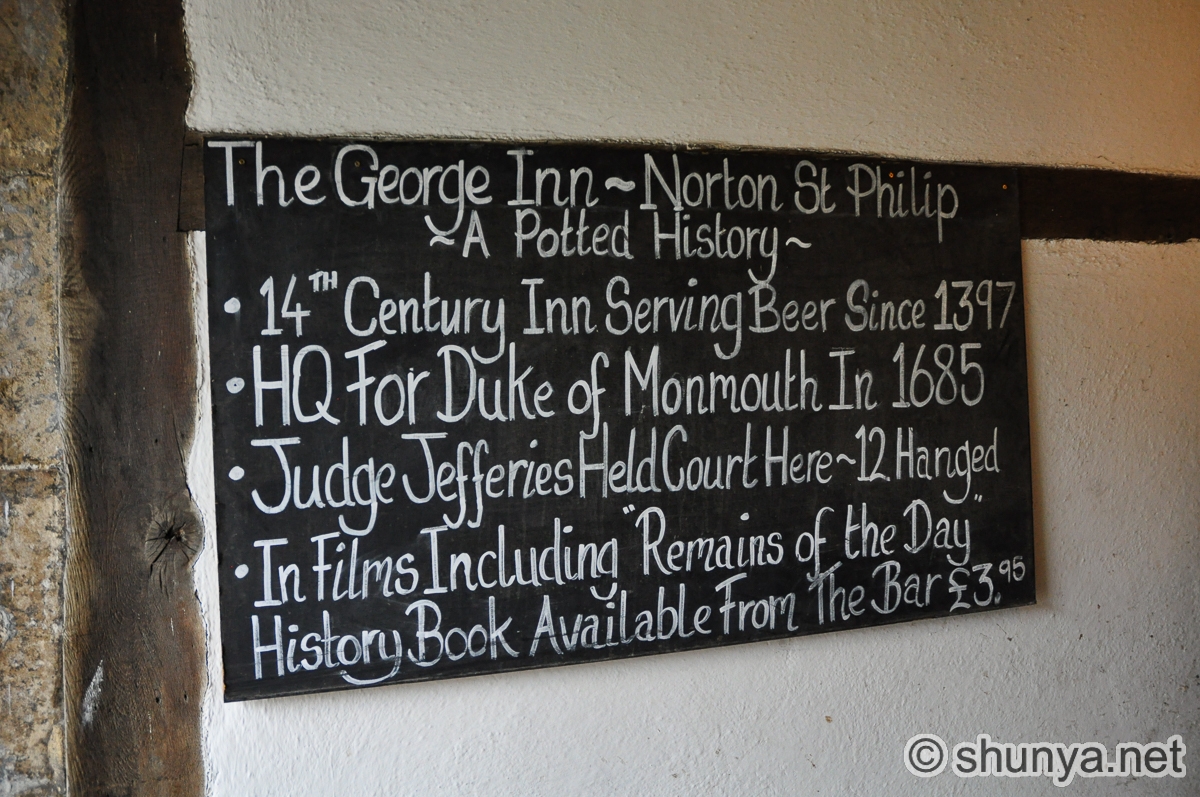 The George Inn ~ Norton St Philip
~ A Potted History ~
• 14TH Century Inn Serving Beer Since 1397
• HQ For Duke of Monmouth In 1685
• Judge Jefferies Held Court Here ~ 12 Hanged
• In Films Including "Remains of the Day"
History Book Available From The Bar £3.95
© shunya.net